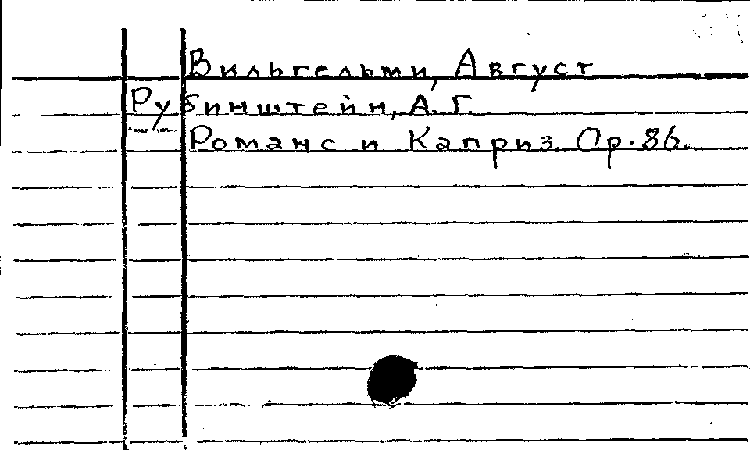 Вильгельми, Август
Рубинштейн, А. Г.
Романс и Каприз Ор. 86.